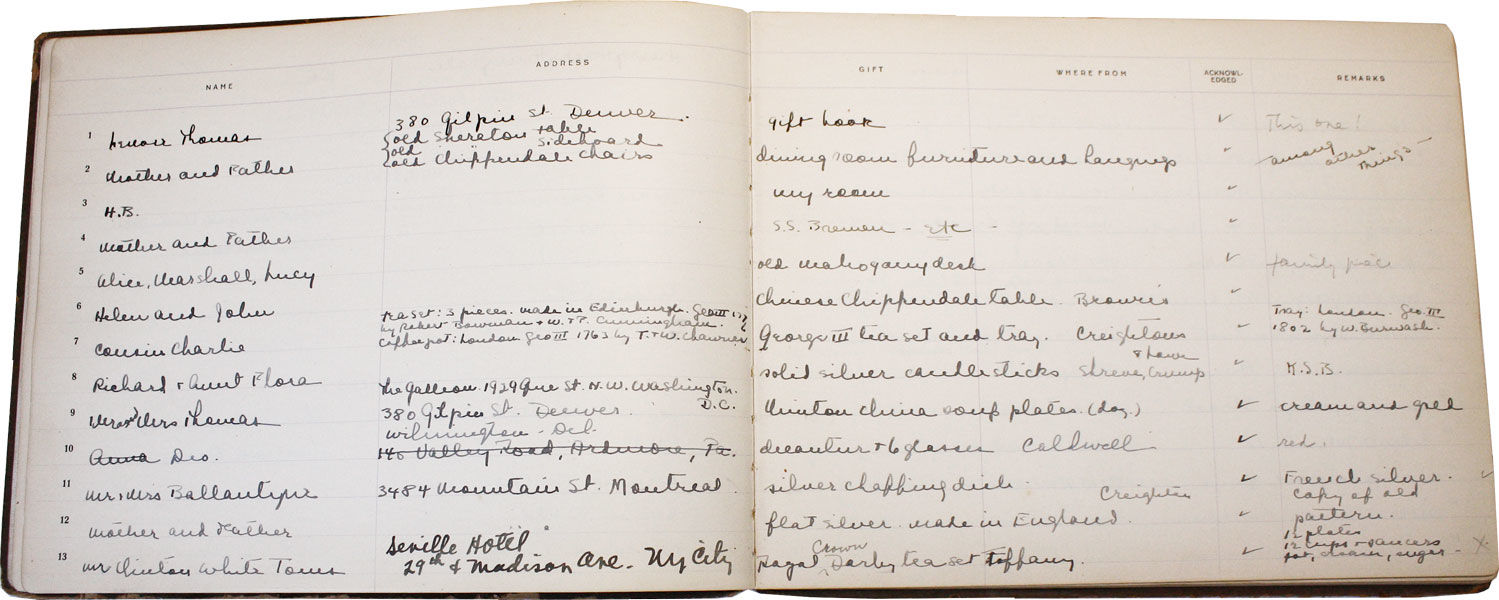 NAME ADDRESS GIFT WHERE FROM ACKNOWL-EDGED REMARKS
380 Gilpin St. Denver.
1 Lenoir Thomas gift book ✓ This one!
{old Sheraton table
{old sideboard
{old Chippendale chairs
2 Mother and Father dining room furniture and hangings ✓ among other things -
3 H.B. my room ✓
4 Mother and Father S.S. Bremen - etc - ✓
5 Alice, Marshall, Lucy old mahogany desk ✓ family piece
6 Helen and John Chinese Chippendale table. Brown's ✓
tea set: 3 pieces. made in Edinburgh. Geo III
by Robert Bowman + W. + P. Cunningham.
Coffee pot: London Geo III 1763 by T. + W. Chawner
7 Cousin Charlie George III tea set and tray. Creightons ✓ Tray: London. Geo. III
1802 by W. Burwash.
8 Richard + Aunt Flora The Galleon. 1929 Que St. N.W. Washington. D.C. solid silver candlesticks Shreve, Crump & Lowe ✓ K.S.B.
9 Mr and Mrs Thomas 380 Gilpin St. Denver. Minton china soup plates. (doz.) ✓ cream and gold
Wilmington - Del.
10 Anna Deo. 140 Valley Road, Ardmore, Pa. decanter + 6 glasses Caldwell ✓ red.
11 Mr + Mrs Ballantyne 3484 Mountain St. Montreal. silver chaffing dish. ✓ French silver. ✓
12 Mother and Father flat silver. made in England. Creighton ✓ copy of old pattern.
Seville Hotel
13 Mr Clinton White Toms 29th & Madison Ave. - Ny City Royal Crown Darby tea set Tiffany. ✓ 12 plates
12 cups + saucers
pot, cream, sugar - X